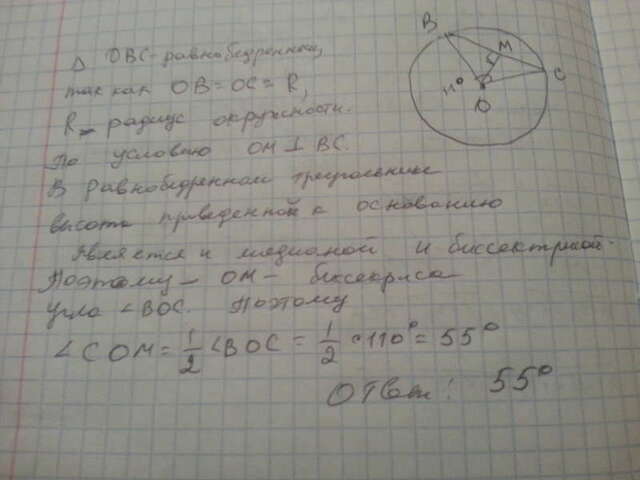 Δ OBC - равнобедренный,
так как OB = OC = R,
R - радиус окружности.
По условию OM ⊥ BC.
В равнобедренном треугольнике
высота проведенной к основанию
является и медианой и биссектрисой.
Поэтому - OM - биссектриса
угла ∠BOC. Поэтому
∠COM = 1/2 ∠BOC = 1/2 · 110° = 55°
Ответ: 55°
B
M
C
O